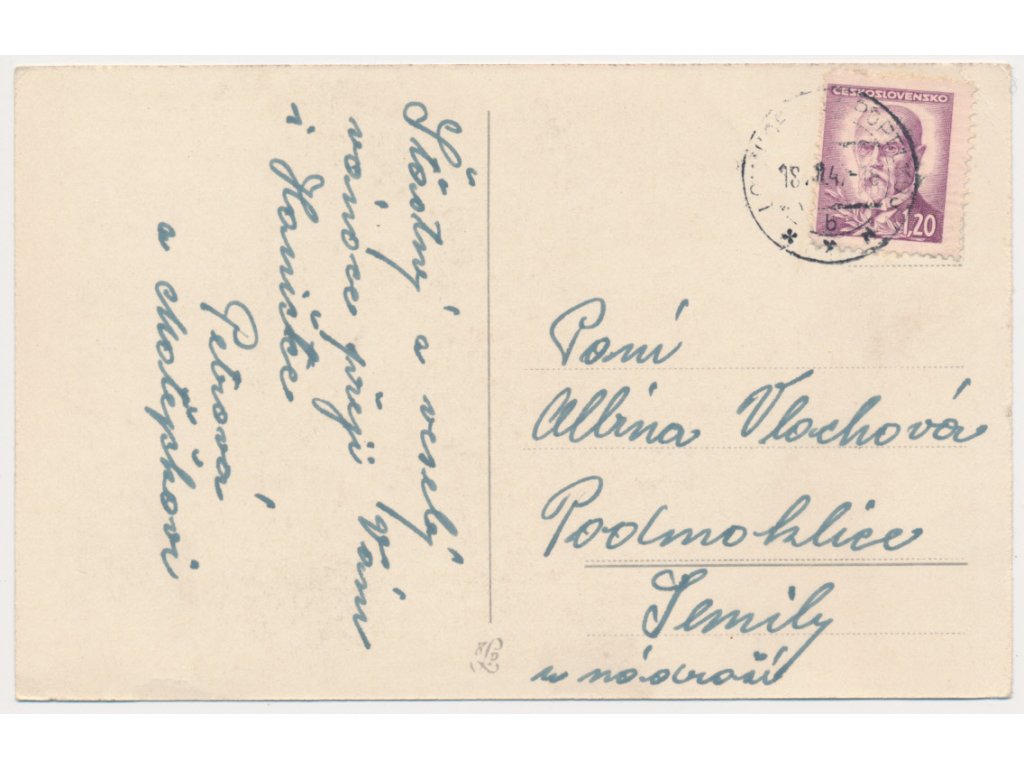 Šťastný a veselý
vánoce přeji Vám
i Haničce
Petrová
a Matěpkovi
ČESKOSLOVENSKO
1,20
b
Paní
Albina Vlachová
Podmoklice
Semily
u nádraží